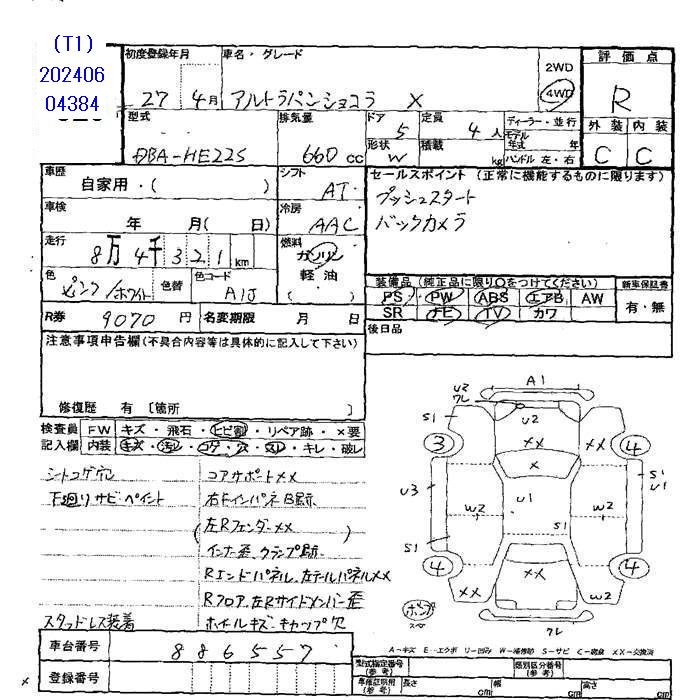 (T1)
202406
04384
初度登録年月 車名・グレード 2WD 評価点
27 4月 アルトラパンショコラ X 4WD R
型式 排気量 ドア 定員 ディーラー・並行 外装 内装
DBA-HE22S 660cc 5 4人 モデル年式 年 C C
形状 W 積載 kg ハンドル 左・右
車歴 シフト セールスポイント (正常に機能するものに限ります)
自家用・( ) AT プッシュスタート
車検 冷房 バックカメラ
年 月( 日) AAC
走行 燃料
8万4千321km ガソリン
色 色替 色コード 軽油
ピンク/ホワイト A1J ( )
装備品 (純正品に限り○をつけてください) 新車保証書
PS PW ABS エアB AW 有・無
SR ナビ TV カワ
R券 9070円 名変期限 月 日 後日品
注意事項申告欄(不具合内容等は具体的に記入して下さい)
修復歴 有 [箇所 ]
検査員 FW キズ・飛石・ヒビ割・リペア跡・×要
記入欄 内装 キズ・汚レ・コゲ・穴・スレ・キレ・破レ
シートコゲ穴 コアサポート××
下廻りサビ・ペイント 右FインパネB跡
(左Rフェンダー××)
インナー歪、クランプ跡
Rエンドパネル、左テールパネル××
Rフロア、左Rサイドメンバー歪
スタッドレス装着 ホイールキズ・キャップ欠
A1
U2
ワレ
S1 U2
3 ×× ×× 4
×
S1
U1
U3 W2 U1 W2
S1
S1
4 ×× 4
×× W2
ワレ
A-キズ E-エクボ U-凹み W-補修跡 S-サビ C-腐食 XX-交換済
車台番号 886557
登録番号
型式指定番号(参考) 類別区分番号(参考)
車検証明細(参考) 長さ cm 幅 cm 高さ cm
×